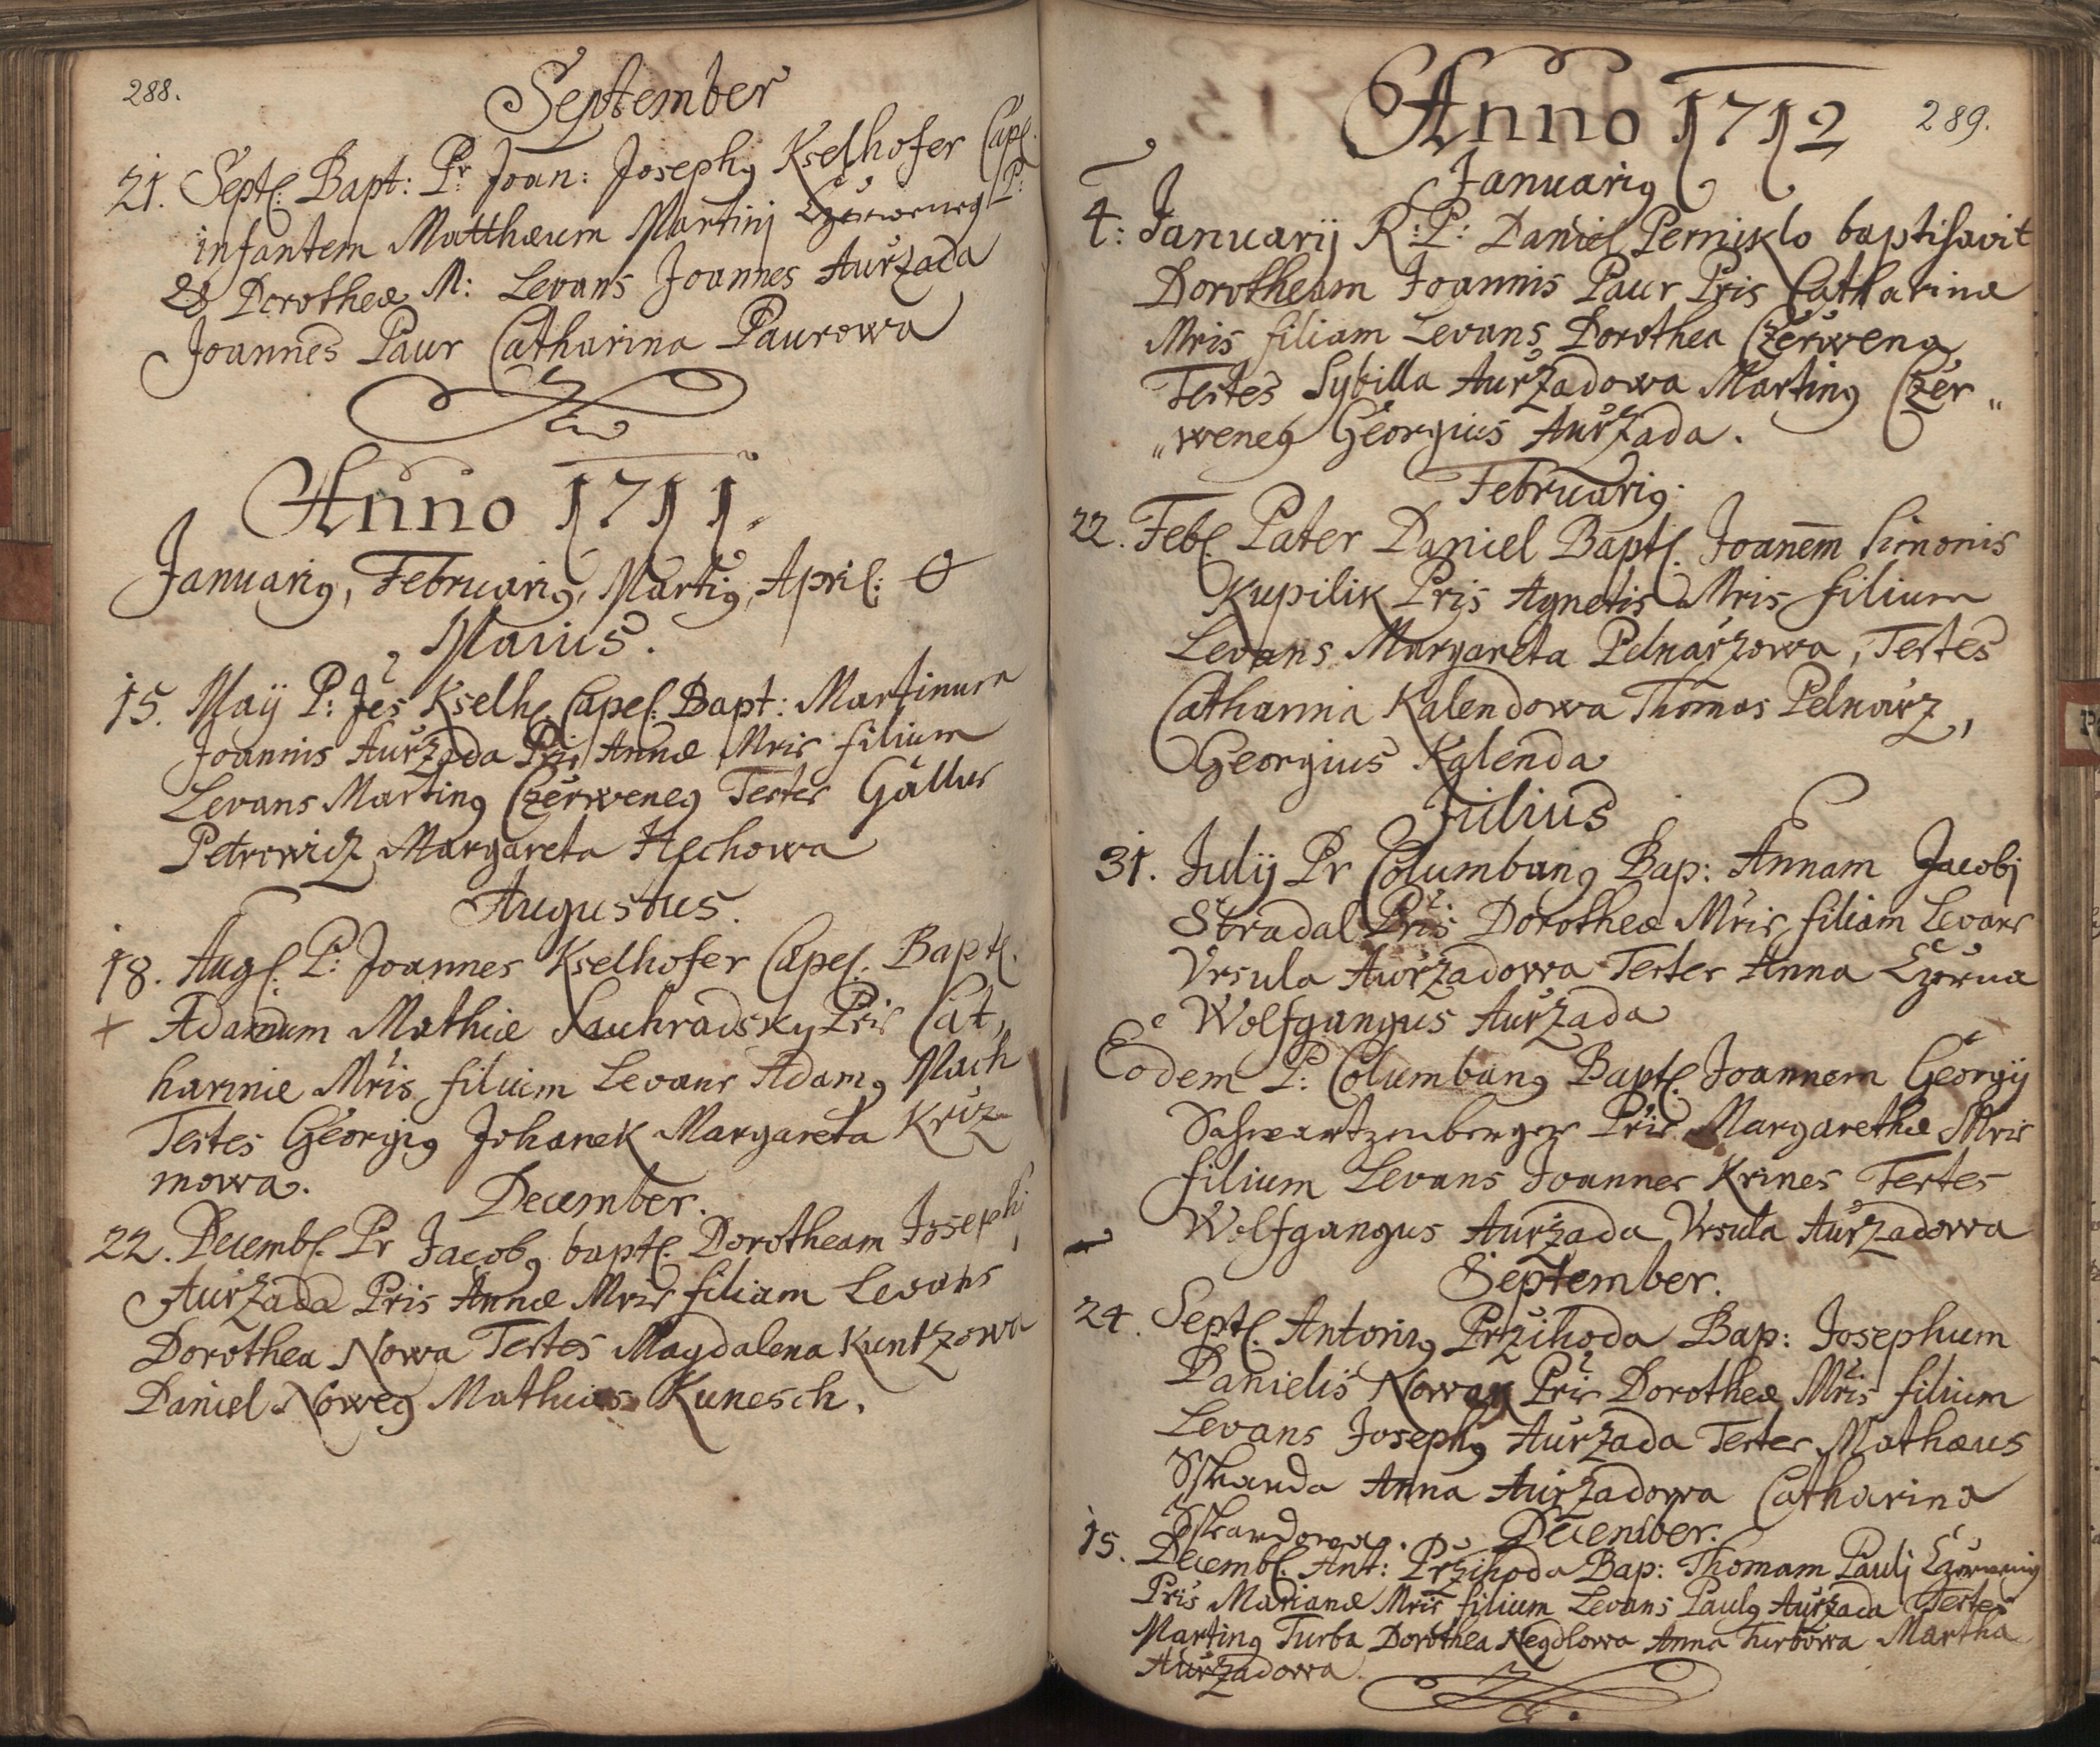 288.
September
21. Septꝭ. Bapt: Pr: Joan: Josephꝰ Kselhofer Capꝭ.
infantem Matthæum Martinj Czerweneꝰ P:
& Dorotheæ M: Levans Joannes Aurzada
Joannes Paur Catharina Paurowa
Anno 1711.
Januariꝰ, Februariꝰ, Martiꝰ, Aprilꝭ: O
Maius.
15. Maÿ P: Jes Kselhꝭ. Capeꝭ. Bapt: Martinum
Joannis Aurzada Pris Annæ Mris filium
Levans Martinꝰ Czerweneꝰ Testes Gallus
Petrowicz Margareta Hechowa
Augustus.
18. Augꝭ. P: Joannes Kselhofer Capeꝭ. Baptꝭ.
+ Adamum Mathiæ Pris Cat,
harinæ Mris filium Levans Adamꝰ Mach
Testes Georgiꝰ Johanek Margareta Kriz
mowa.
December.
22. Decembꝭ. Pr Jacobꝰ baptꝭ. Dorotheam Josephi
Aurzada Pris Annæ Mris filiam Levans
Dorothea Nowa Testes Magdalena Kuntzowa
Daniel Noweꝰ Mathias Kunesch.
Anno 1712
289.
Januariꝰ
4: Januarij R: P: Daniel Perniklo baptisavit
Dorotheam Joannis Paur Pris Catharinæ
Mris filiam Levans Dorothea Czerwena
Testes Sybilla Aurzadowa Martinꝰ Czer „
„ weneꝰ Georgius Aurzada.
Februariꝰ.
22. Febꝭ. Pater Daniel Baptꝭ. Joanem̄ Simonis
Kupilik Pris Agnetis Mris filium
Levans Margareta Pelnarzowa, Testes
Catharina Kalendowa Thomas Pelnarz,
Georgius Kalenda
Julius
31. Julij Pr Columbanꝰ Bap: Annam Jacobj
Stradal Pris Dorotheæ Mris filiam Levans
Ursula Aurzadowa Testes Anna Czerna
Wolfgangus Aurzada
Eodem P: Columbanꝰ Baptꝭ. Joannem Georgij
Schwartzenberger Pris Margarethæ Mris
filium Levans Joannes Krines Testes
Wolfgangus Aurzada Ursula Aurzadowa
September.
24. Septꝭ. Antoniꝰ Przihoda Bap: Josephum
Danielis Nowaꝰ Pris Dorotheæ Mris filium
Levans Josephꝰ Aurzada Testes Mathæus
Skarda Anna Aurzadowa Catharina
Skardowa.
December.
15. Decembꝭ. Ant: Przihoda Bap: Thomam Paulj
Pris Marianæ Mris filium Levans Paulꝰ Aurzada Testes
Martinꝰ Turba Dorothea Negdlowa Anna Turbowa Martha
Aurzadowa.